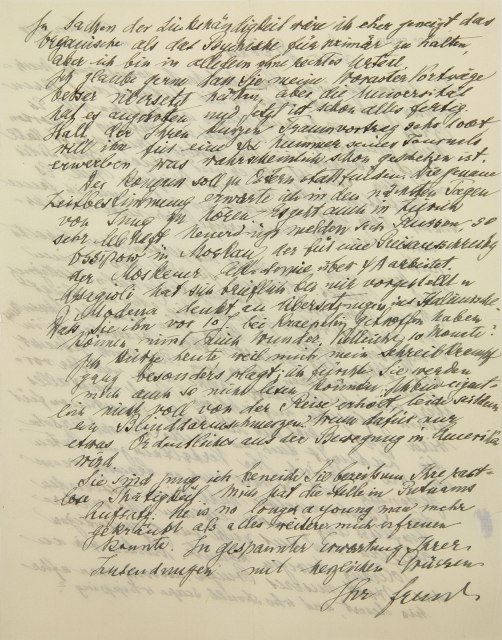 In Sachen der Linkshändigkeit wäre ich eher geneigt das
Organische als das Psychische für primär zu halten,
aber ich bin in alledem ohne rechtes Urteil.
Ich glaube gerne dass Sie meine Vorträge
besser übersetzt hätten, aber die Universität
hat es angeboten und jetzt ist schon alles fertig.
Hall der Ihren kurzen Traumvortrag sehr lobt
will ihn für eine Nummer seines Journals
erwerben was wahrscheinlich schon geschehen ist.
Der Kongress soll zu Ostern stattfinden. Die genaue
Zeitbestimmung erwarte ich in den nächsten Tagen
von Jung zu hören. Es geht auch in Zürich
sehr lebhaft. Neuerdings melden sich Russen, so
Ossipow in Moskau, der für eine Preisausschreibung
der Moskauer Akademie über ΨA arbeitet.
hat sich brieflich bei mir vorgestellt u
Modena denkt an Übersetzungen ins Italienische.
Dass Sie ihn vor 10 bei Kraepelin getroffen haben
könnte nimmt mich Wunder. Vielleicht 10 Monate?
Ich kürze heute weil mich mein Schreibkrampf
ganz besonders plagt, ich fürchte Sie werden
mich auch so nicht lesen können.
nicht voll von der Reise erholt, leide seither
an Blinddarmschmerzen. Wenn dafür nur
etwas Ordentliches aus der Bewegung in Amerika
wird.
Sie sind jung, ich beneide Sie bereits um Ihre rast-
lose Thätigkeit. Mich hat die Stelle in Putnams
Aufsatz: He is no longer a young man mehr
gekränkt als alles weitere mich erfreuen
konnte. In gespannter Erwartung Ihrer
mit herzlichen Grüssen
Ihr Freud